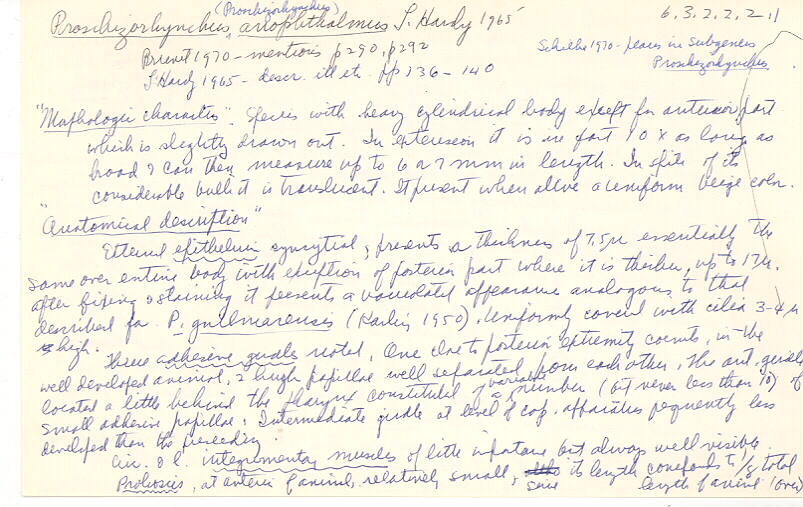 (Proschizorhynchus)
Proschizorhynchus anophthalmus J. Hardy 1965 6.3.2.2.2.11
Brunet 1970 - mentions p290, p292
Schilke 1970 - places in subgenus
Proschizorhynchus
J. Hardy 1965 - descr. ill etc. pp 136 - 140
"Morphologic characters". Species with heavy cylindrical body except for anterior part
which is slightly drawn out. In extension it is in fact 10 X as long as
broad & can then measure up to 6 or 7 mm in length. In spite of its
considerable bulk it is translucent. It present when alive a uniform beige color.
"Anatomical description"
External epithelium syncytial, presents a thickness of 7,5µ essentially the
same over entire body with exception of posterior part where it is thicker, up to 17µ.
after fixing & staining it presents a vacuolated appearance analogous to that
described for P. gullmarensis (Karling 1950). Uniformly covered with cilia 3-4µ
high.
Three adhesive girdles noted. One close to posterior extremity consists, in the
well developed animal, 2 high papillae well separated from each other. The ant. girdle
located a little behind the pharynx constituted of a variable number (but never less than 10) of
small adhesive papillae. Intermediate girdle at level of cop. apparatus frequently less
developed than the preceding.
Circ. & l. integumentary muscles of little importance but always well visible.
Proboscis, at anterior of animal, relatively small, since its length corresponds to 1/8 total
length of animal (over)